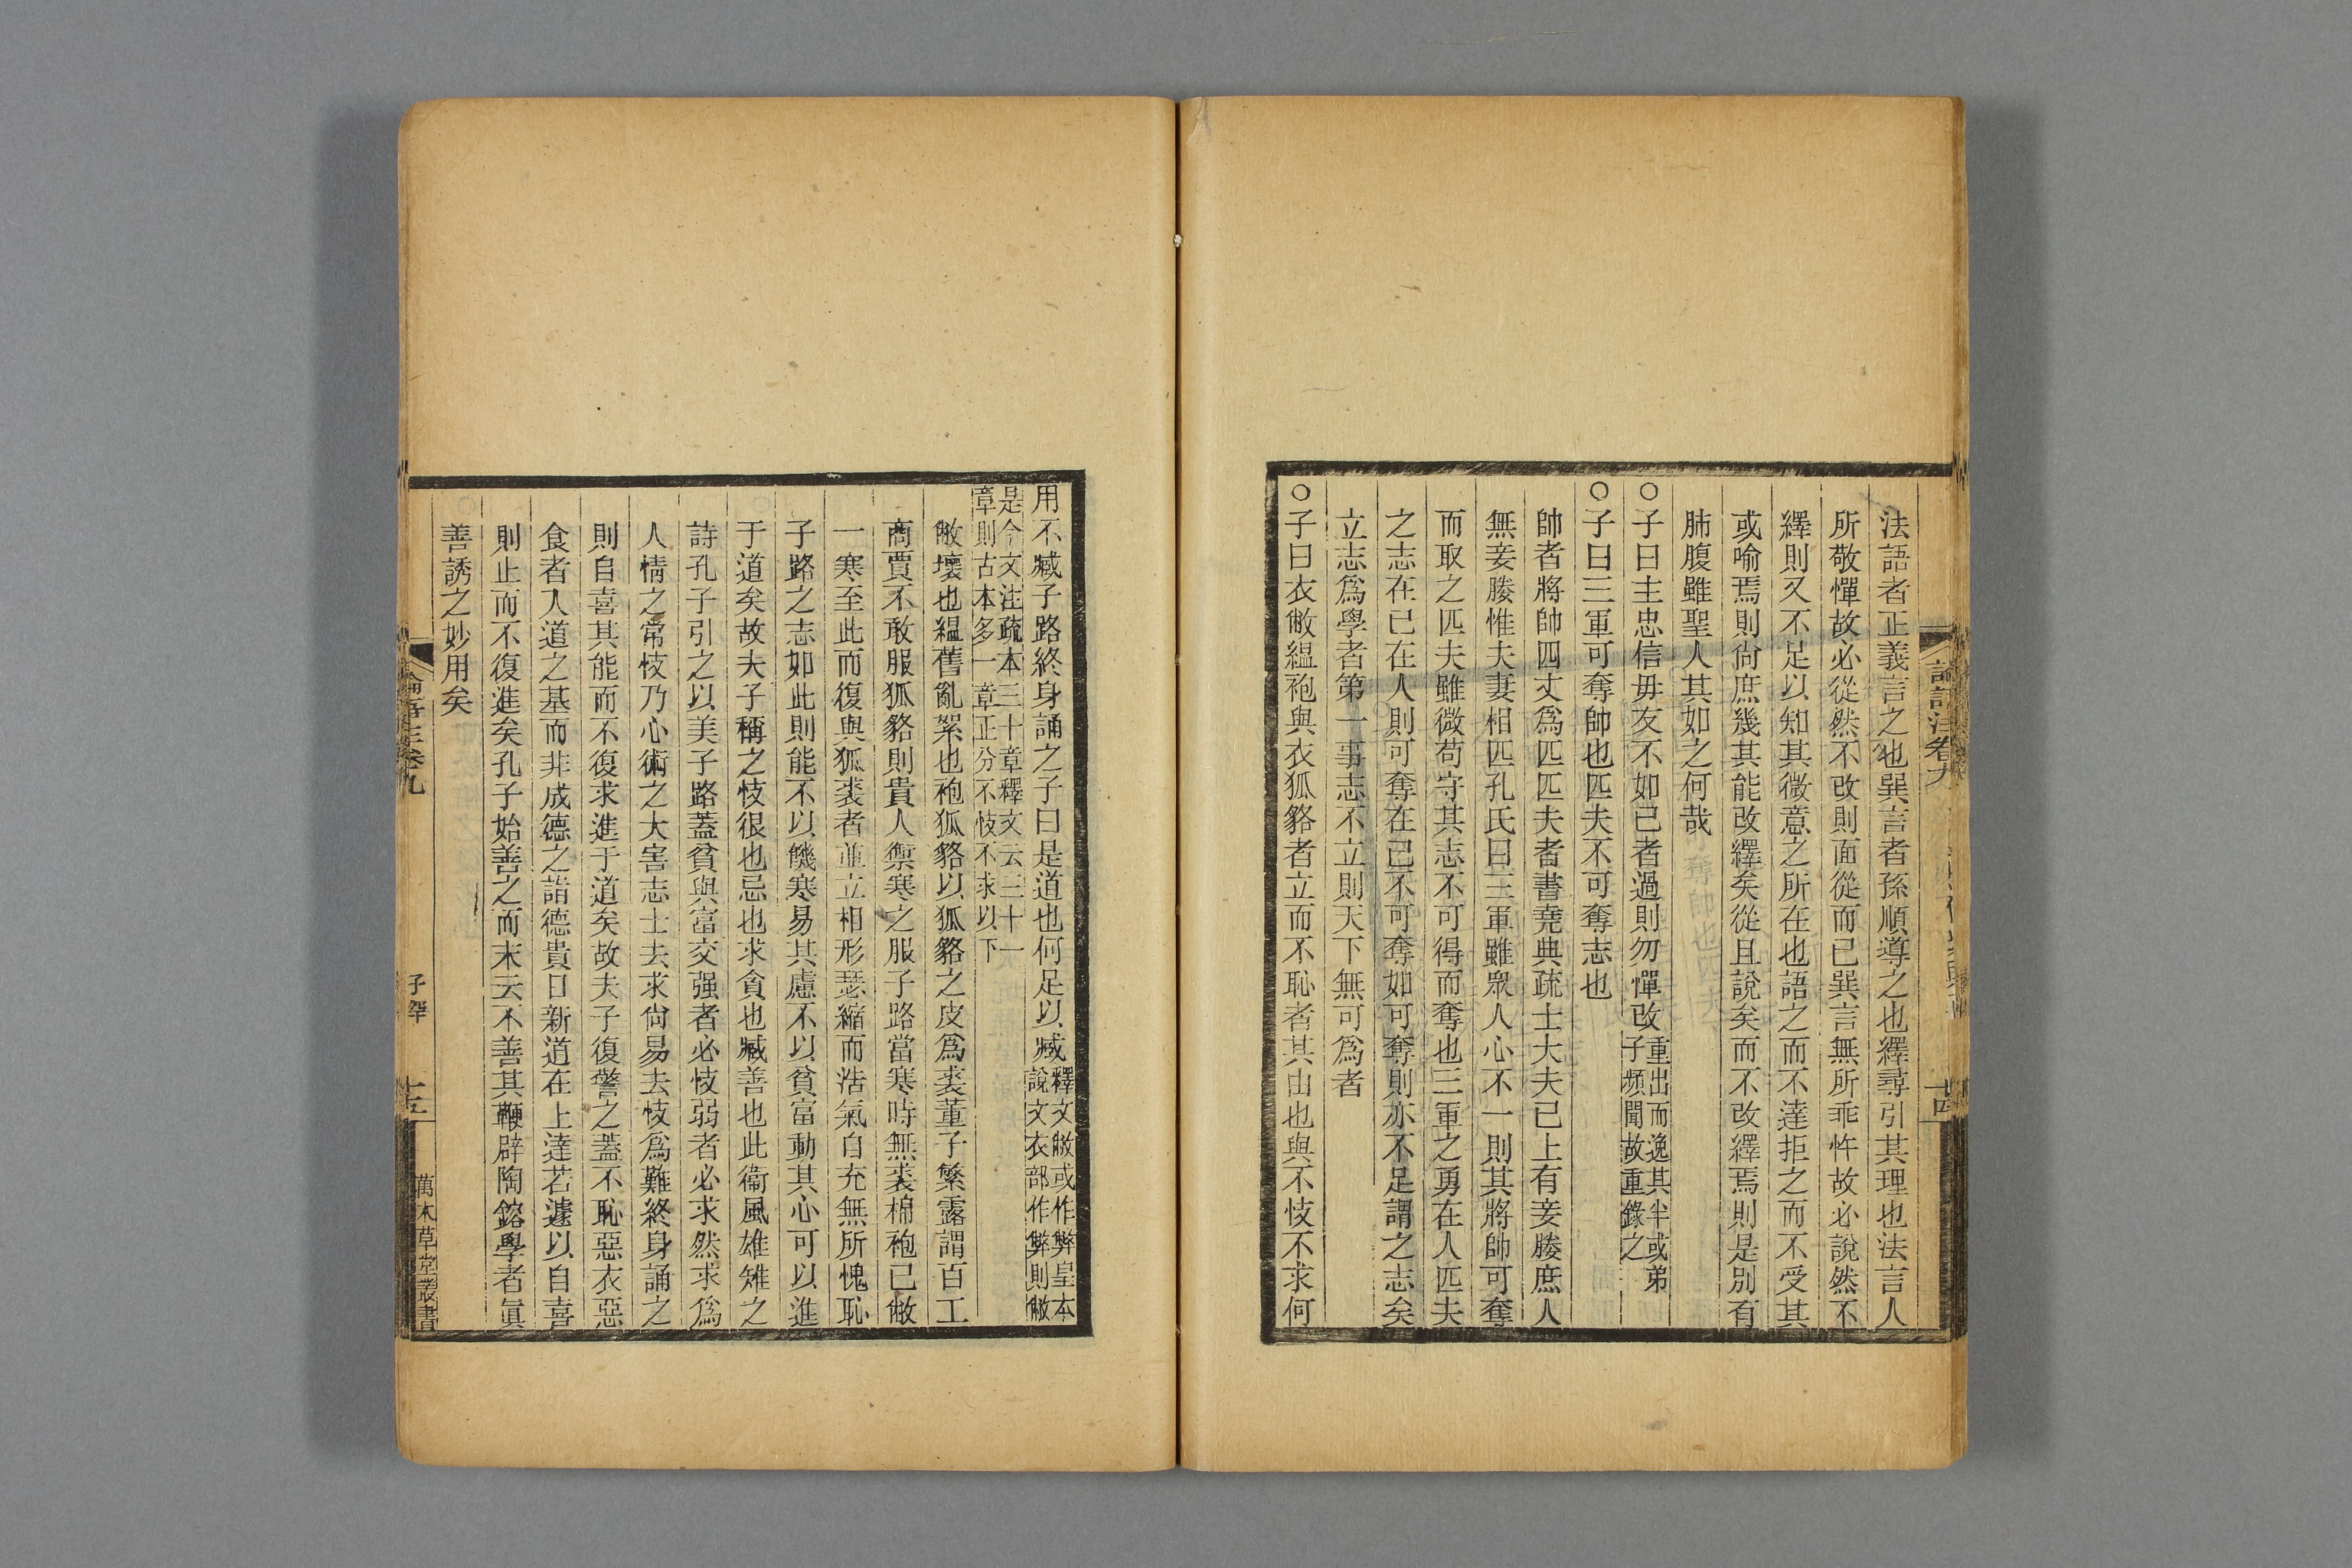 法語者正義言之也巽言者孫順導之也繹尋引其理也法言人
所敬憚故必從然不改則面從而已巽言無所乖忤故必說然不
繹則又不足以知其微意之所在也語之而不達拒之而不受其
或喻焉則尙庶幾其能改繹矣從且說矣而不改繹焉則是別有
肺腹雖聖人其如之何哉
○子曰主忠信毋友不如己者過則勿憚改重出而逸其半或弟
子頻聞故重錄之
○子曰三軍可奪帥也匹夫不可奪志也
帥者將帥四丈爲匹匹夫者書堯典疏士大夫已上有妾媵庶人
無妾媵惟夫妻相匹孔氏曰三軍雖眾人心不一則其將帥可奪
而取之匹夫雖微苟守其志不可得而奪也三軍之勇在人匹夫
之志在己在人則可奪在己不可奪如可奪則亦不足謂之志矣
立志爲學者第一事志不立則天下無可爲者
○子曰衣敝縕袍與衣狐貉者立而不恥者其由也與不忮不求何
用不臧子路終身誦之子曰是道也何足以臧釋文敝或作弊皇本
說文衣部作弊則敝
是今文注疏本三十章釋文云三十一
章則古本多一章正分不忮不求以下
敝壞也縕舊亂絮也袍狐貉以狐貉之皮爲裘董子繁露謂百工
商賈不敢服狐貉則貴人禦寒之服子路當寒時無裘棉袍已敝
一寒至此而復與狐裘者並立相形瑟縮而浩氣自充無所愧恥
子路之志如此則能不以饑寒易其慮不以貧富動其心可以進
于道矣故夫子稱之忮很也忌也求貪也臧善也此衞風雄雉之
詩孔子引之以美子路蓋貧與富交强者必忮弱者必求然求爲
人情之常忮乃心術之大害志士去求尙易去忮爲難終身誦之
則自喜其能而不復求進于道矣故夫子復警之蓋不恥惡衣惡
食者入道之基而非成德之詣德貴日新道在上達若遽以自喜
則止而不復進矣孔子始善之而末云不善其鞭辟陶鎔學者眞
善誘之妙用矣
論語注卷九
子罕
十五
萬木草堂叢書